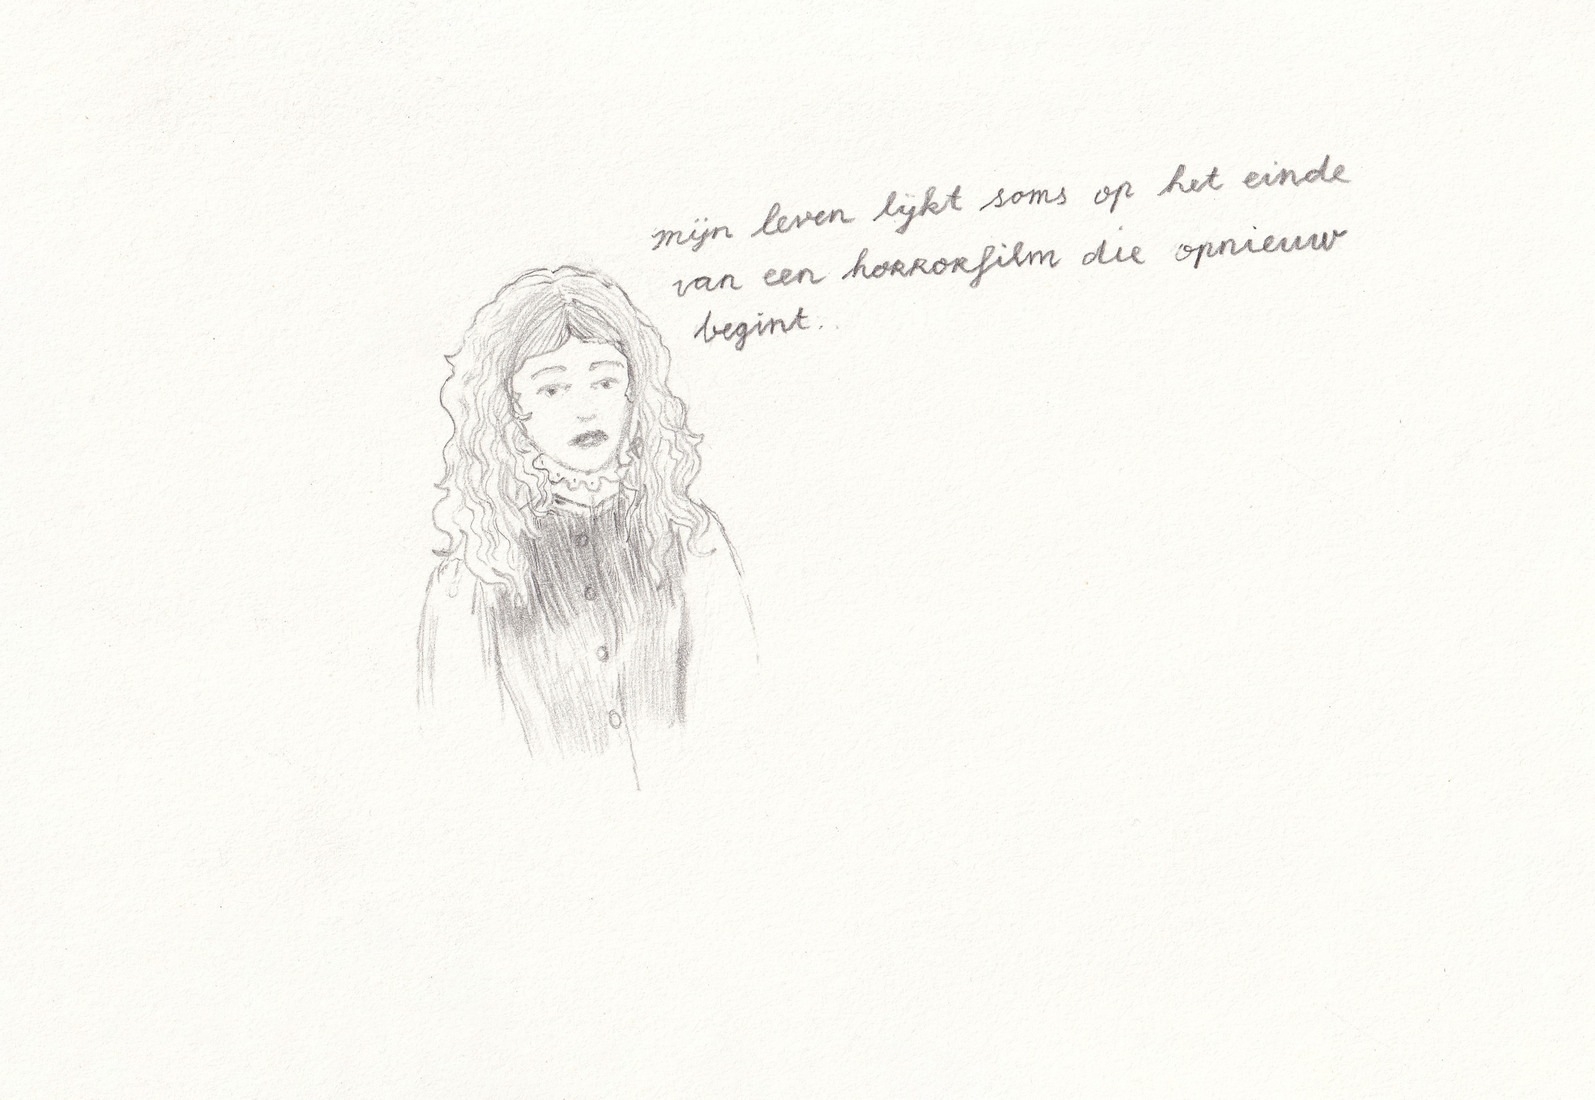 mijn leven lijkt soms op het einde
van een horrorfilm die opnieuw
begint..